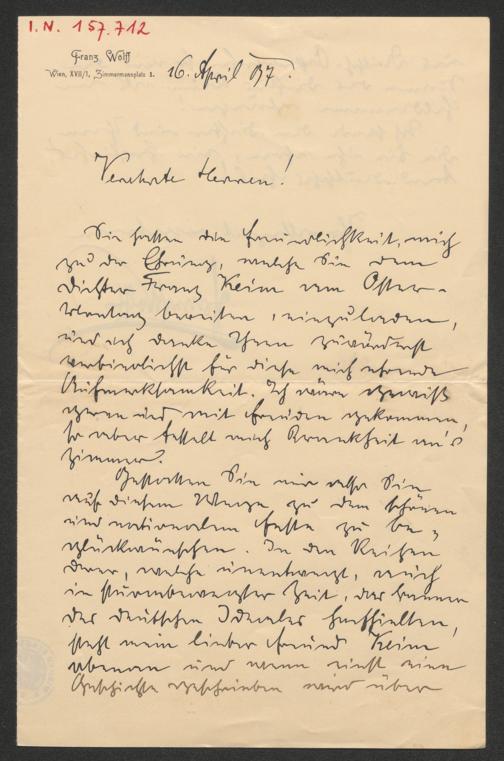 I.N. 157.712
Franz Wolff
Wien, XVII/1, Zimmermannplatz 1.
16. April 97.
Verehrte Herren!
Sie hatten die Freundlichkeit, mich
zu der Ehrung, welche Sie dem
Dichter Franz Keim am Oster-
Montag bereiten, einzuladen,
und ich danke Ihnen zuvörderst
verbindlichst für diese mich ehrende
Aufmerksamkeit. Ich wäre gewiß
gerne und mit Freuden gekommen,
so aber fesselt mich Krankheit an's
Zimmer.
Gestatten Sie mir also Sie
auf diesem Wege zu dem schönen
und nationalem Feste zu be-
glückwünschen. In den Reihen
derer, welche unentwegt, auch
in sturmbewegter Zeit, das Banner
des deutschen Ideales hochhielten,
steht mein lieber Freund Keim
obenan und wenn einst eine
Geschichte geschrieben wird über